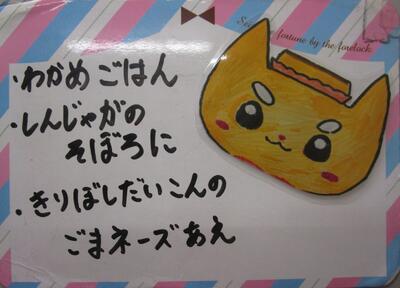 Seize fortune by the forelock
・わかめごはん
・しんじゃがの
そぼろに
・きりぼしだいこんの
ごまネーズあえ